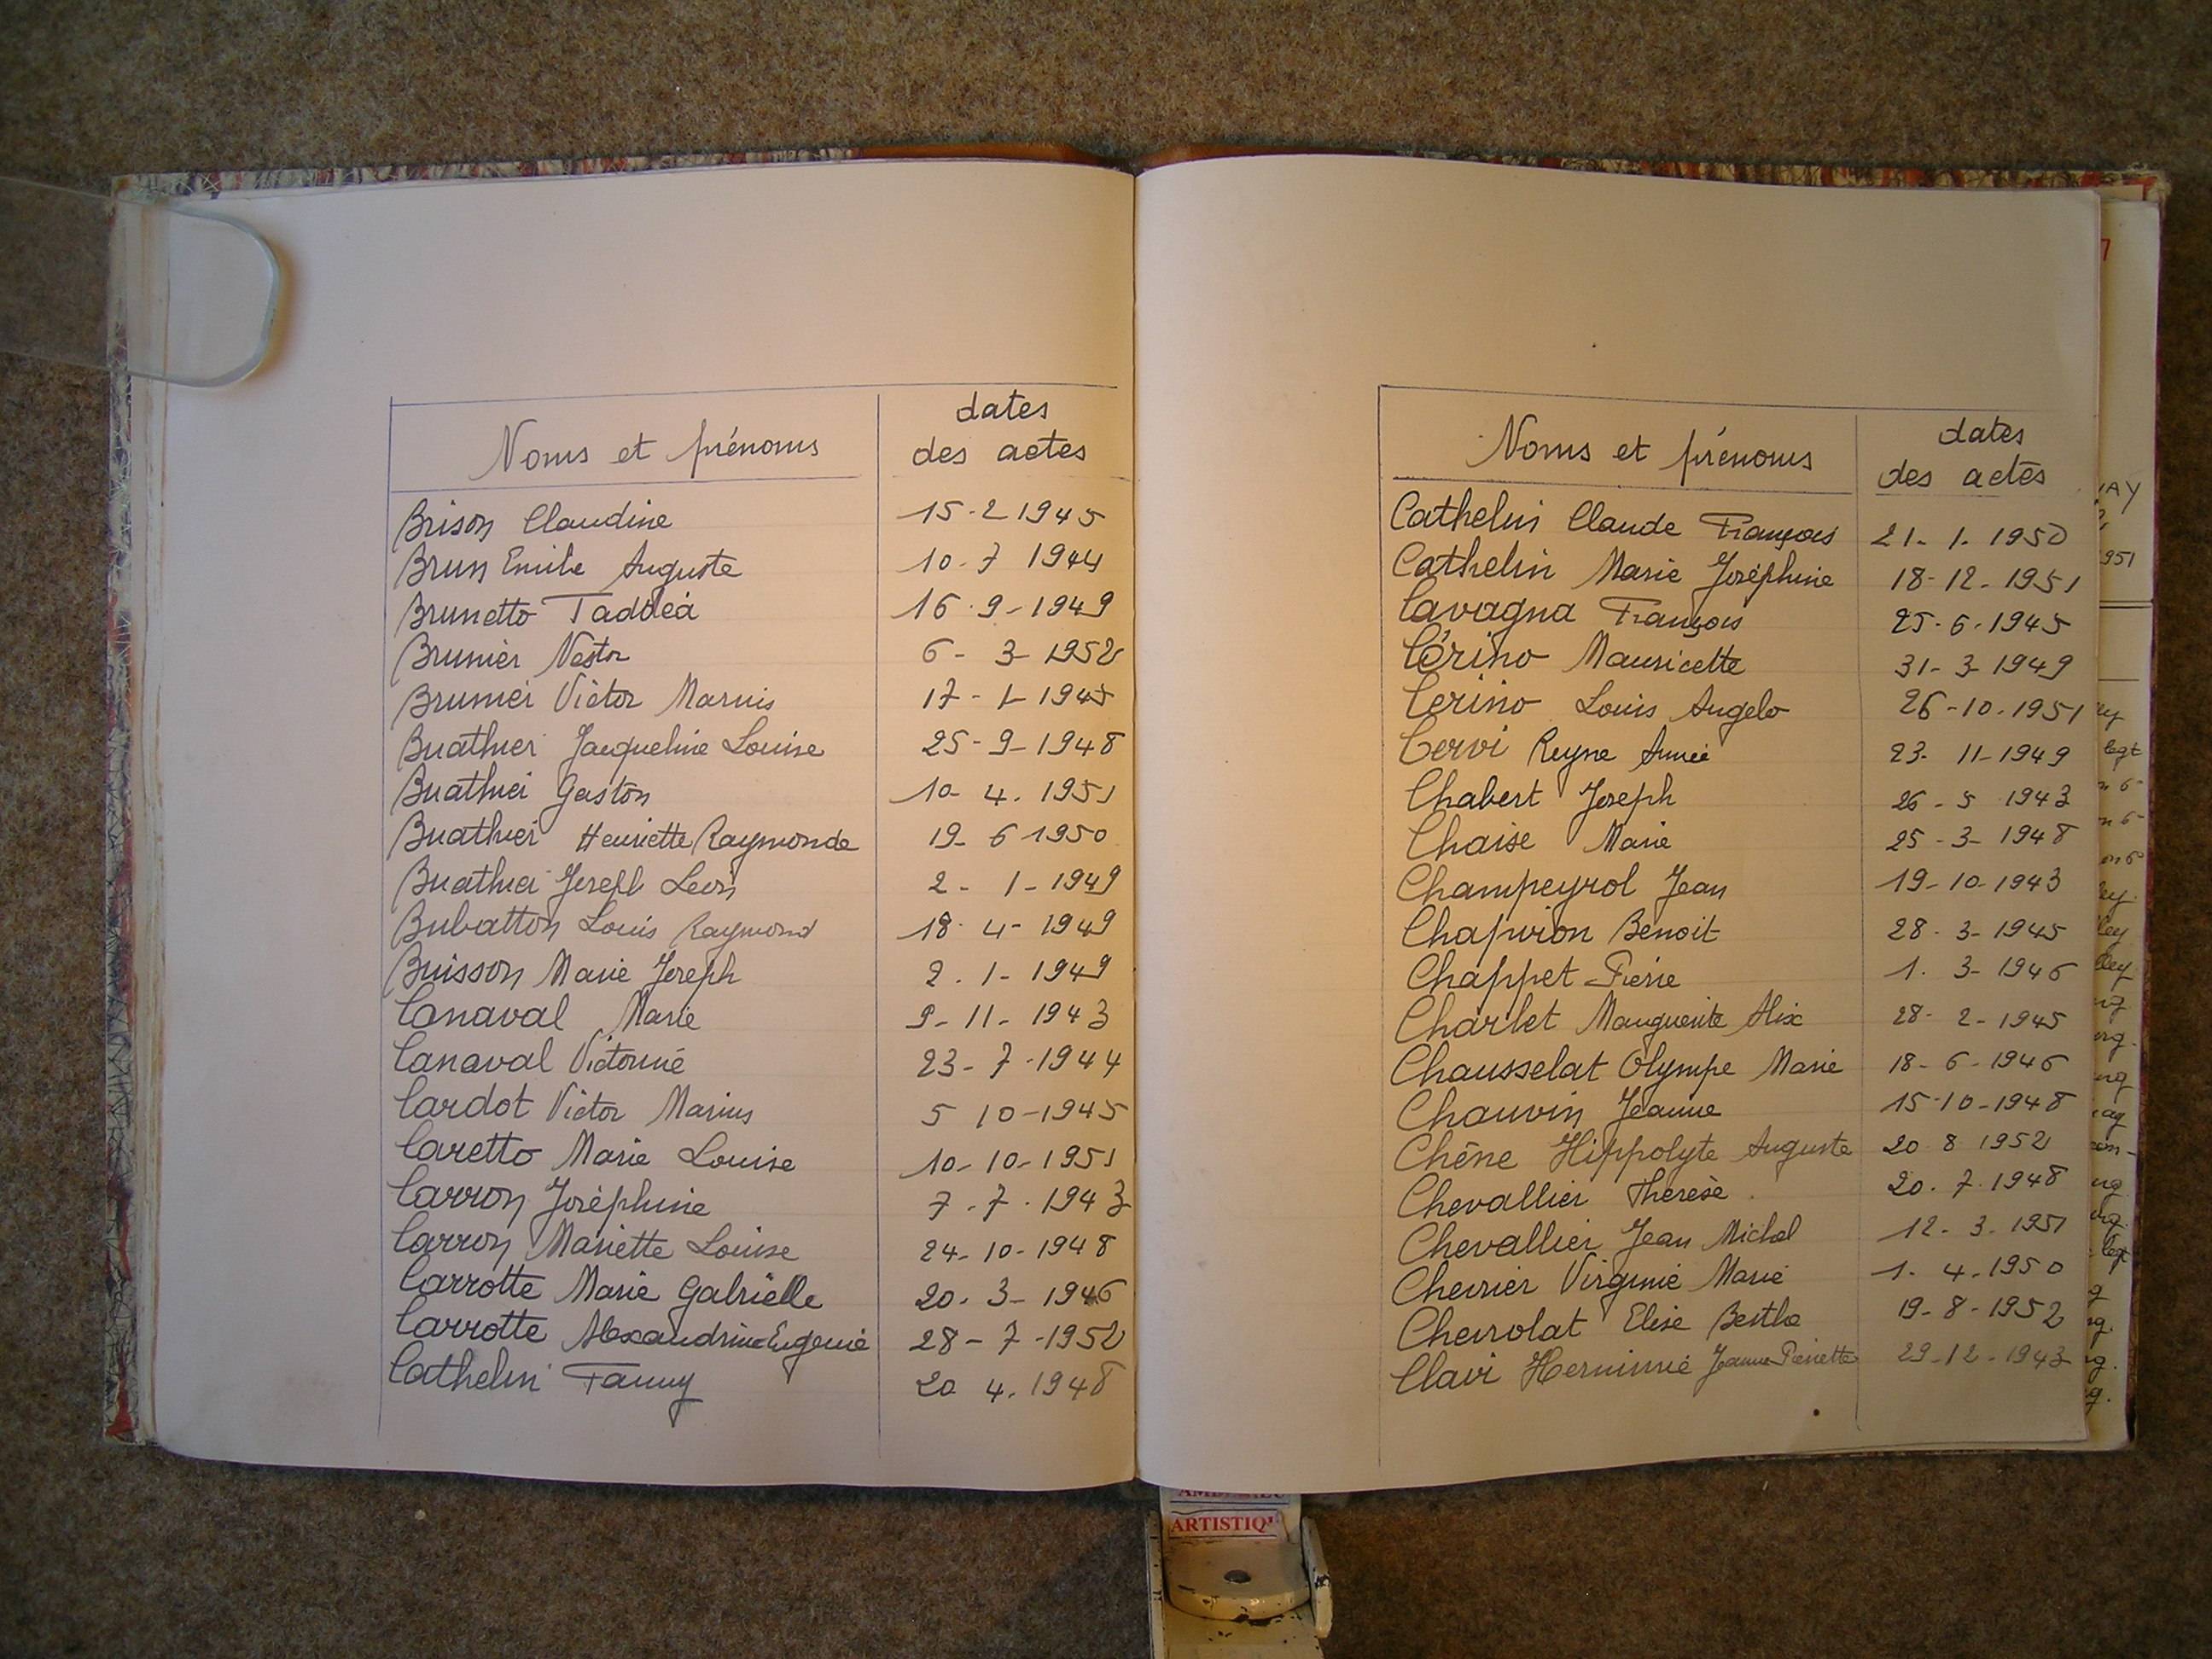 Noms et prénoms
dates
des actes
Brison Claudine 15-2 1945
Brun Emile Auguste 10-7 1944
Brunetto Taddéa 16-9-1949
Brunier Nestor 6-3-1952
Brunier Victor Marius 17-1-1945
Buathier Jacqueline Louise 25-9-1948
Buathier Gaston 10-4.1951
Buathier Henriette Raymonde 19-6 1950
Buathier Joseph Léon 2-1-1949
Bubatton Louis Raymond 18-4-1949
Buisson Marie Joseph 2.1-1949
Canaval Marie 9-11-1943
Canaval Victorine 23-7-1944
Cardot Victor Marius 5 10-1945
Caretto Marie Louise 10-10-1951
Carron Joséphine 7.7.1943
Carron Mariette Louise 24-10-1948
Carrotte Marie Gabrielle 20.3-1946
Carrotte Alexandrine Eugénie 28-7-1952
Cathelin Fanny 20 4.1948
Noms et prénoms
dates
des actes
Cathelin Claude François 21-1.1950
Cathelin Marie Joséphine 18-12-1951
Cavagna François 25.6.1945
Cérino Mauricette 31-3-1949
Cerino Louis Angelo 26-10.1951
Cervi Reyne Aimée 23-11-1949
Chabert Joseph 26-5 1943
Chaise Marie 25-3-1948
Champeyrol Jean 19-10-1943
Chapuion Benoit 28-3-1945
Chappet Pierre 1.3-1946
Charlet Marguerite Alix 28-2-1945
Chausselat Olympe Marie 18-6-1946
Chauvin Jeanne 15-10-1948
Chêne Hippolyte Auguste 20 8 1952
Chevallier Thérèse 20.7.1948
Chevallier Jean Michel 12-3.1951
Chevrier Virginie Marie 1.4.1950
Chevrolat Elise Berthe 19-8-1952
Clavi Herminie Jeanne Pierrette 29-12-1943
ARTISTIQ